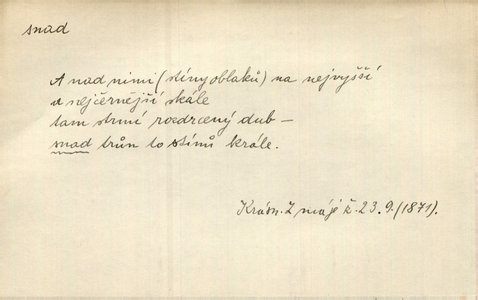 snad
A nad nimi (stíny oblaků) na nejvyšší
a nejčernější skále
tam strmí rozdrcený dub –
snad trůn to stínů krále.
Krásn. Z máje č. 23. 9. (1871).